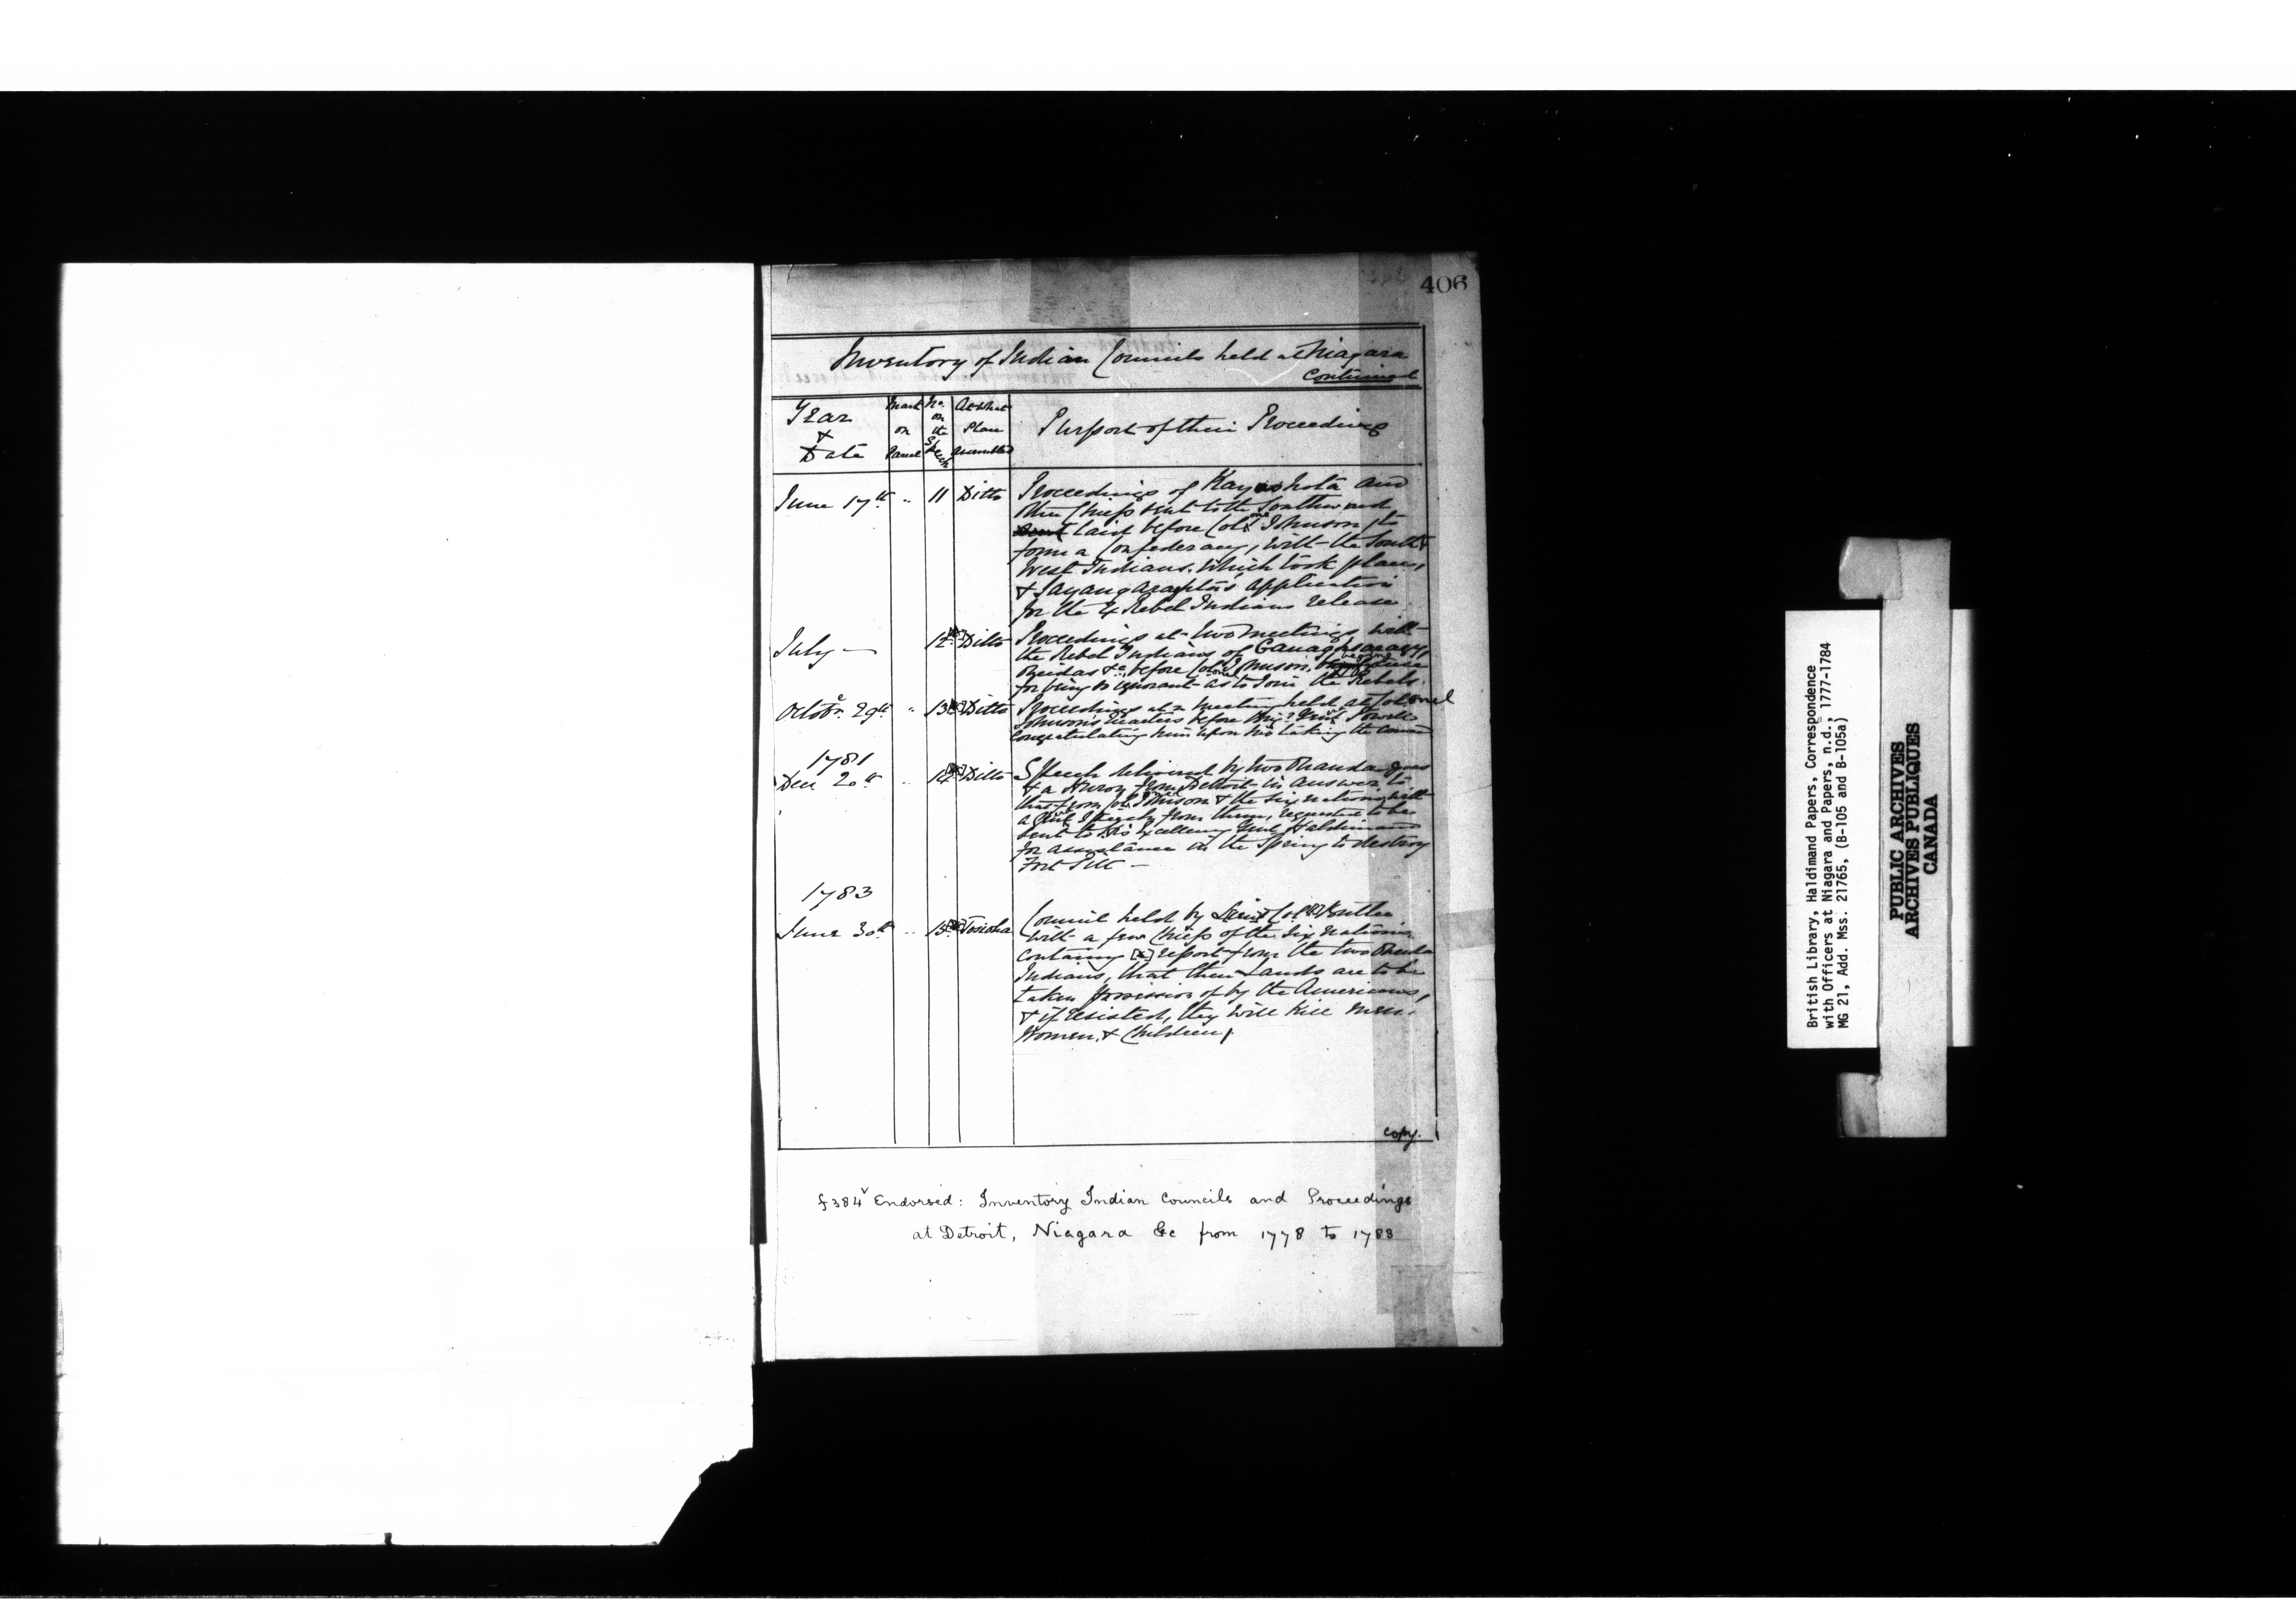 406
Inventory of Indian Councils held at Niagara
Continued
Year & Date
Mark on Parcel
No. on the Speech
At What Place Assembled
Purport of their Proceedings
June 17th " 11 Ditto Proceedings of Kayashota and
Other Chiefs sent to the Southward
laid before Colone Johnson, to
form a Confederacy, with the South &
West Indians. Which took place,
& Sayangaraghta's application
for the 4 Rebel Indians release
July — 12 Ditto Proceedings at two meetings with
the Rebel Indians of
Oneidas &c, before Colonel Johnson,
for being so ignorant as to Join the Rebels.
Octobr. 29th " 13 Ditto Proceedings at a Meeting held at Colonel
Johnson's Quarters before Brigr Genl Powell
Congratulating him upon his taking the Comm
1781
Dec 20th " 14 Ditto Speech delivered by two
& a Huron from Detroit in answer to
that from Colonel Johnson & the Six Nations with
a Speech from them, requested to be
sent to His Excellency Genl Haldimand
for assistance in the Spring to destroy
Fort Pitt —
1783
June 30th " 15 Tosioha Council held by Lieut Col Butler
with a few Chiefs of the Six Nations
Containg [a] report from the two
Indians, that their Lands are to be
taken possession of by the Americans,
& if resisted, they will Kill Men.
Women, & Children.
Copy.
f384v Endorsed: Inventory Indian Councils and Proceedings
at Detroit, Niagara &c from 1778 to 1783
British Library, Haldimand Papers, Correspondence
with Officers at Niagara and Papers, n.d., 1777-1784
MG 21, Add. Mss. 21765, (B-105 and B-105a)
PUBLIC ARCHIVES
ARCHIVES PUBLIQUES
CANADA